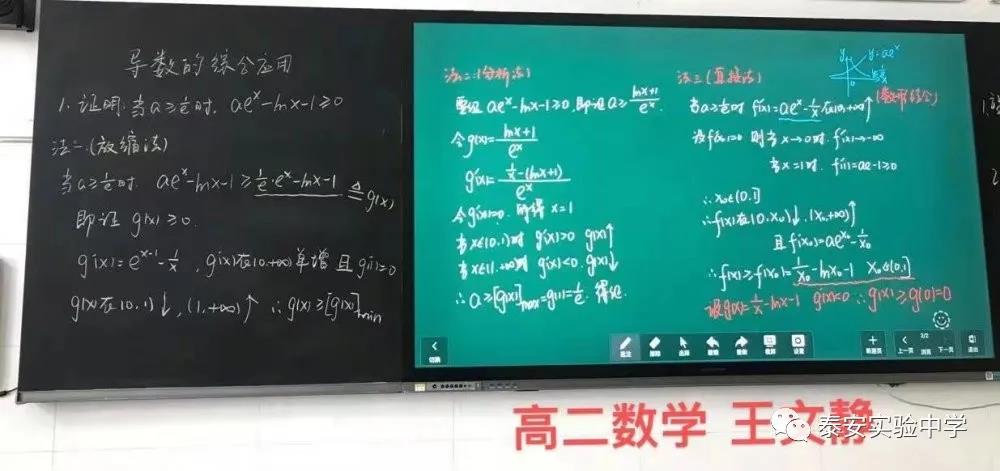 导数的综合应用
1. 证明:当a≥1/e时, ae^x-lnx-1≥0
法一:(放缩法)
当a≥1/e时, ae^x-lnx-1≥1/e·e^x-lnx-1≜g(x)
即证 g(x)≥0.
g'(x)=e^(x-1)-1/x, g'(x)在(0,+∞)单增 且g'(1)=0
g(x)在(0,1)↓, (1,+∞)↑ ∴g(x)≥[g(x)]min
法二:(分析法)
要证 ae^x-lnx-1≥0, 即证 a≥(lnx+1)/e^x
令g(x)=(lnx+1)/e^x
g'(x)=(1/x-(lnx+1))/e^x
令g'(x)=0, 解得 x=1
当x∈(0,1)时 g'(x)>0 g(x)↑
当x∈(1,+∞)时 g'(x)<0, g(x)↓
∴a≥[g(x)]max=g(1)=1/e. 得证
法三(直接法)
y
y=ae^x
0
(数形结合)
当a≥1/e时 f'(x)=ae^x-1/x在(0,+∞)↑
设f'(x0)=0 则当x→0时 f'(x)→-∞
当x=1时 f'(1)=ae-1≥0
∴x0∈(0,1]
∴f(x)在(0,x0)↓, (x0,+∞)↑
且f'(x0)=ae^x0-1/x0
∴f(x)≥f(x0)=1/x0-lnx0-1 x0∈(0,1]
设g(x)=1/x-lnx-1 g'(x)<0 ∴g(x)≥g(1)=0
切换
批注
擦除
选择
撤销
恢复
设置
新建页
上一页
2/2
浏览
下一页
退出
高二数学 王文静
泰安实验中学